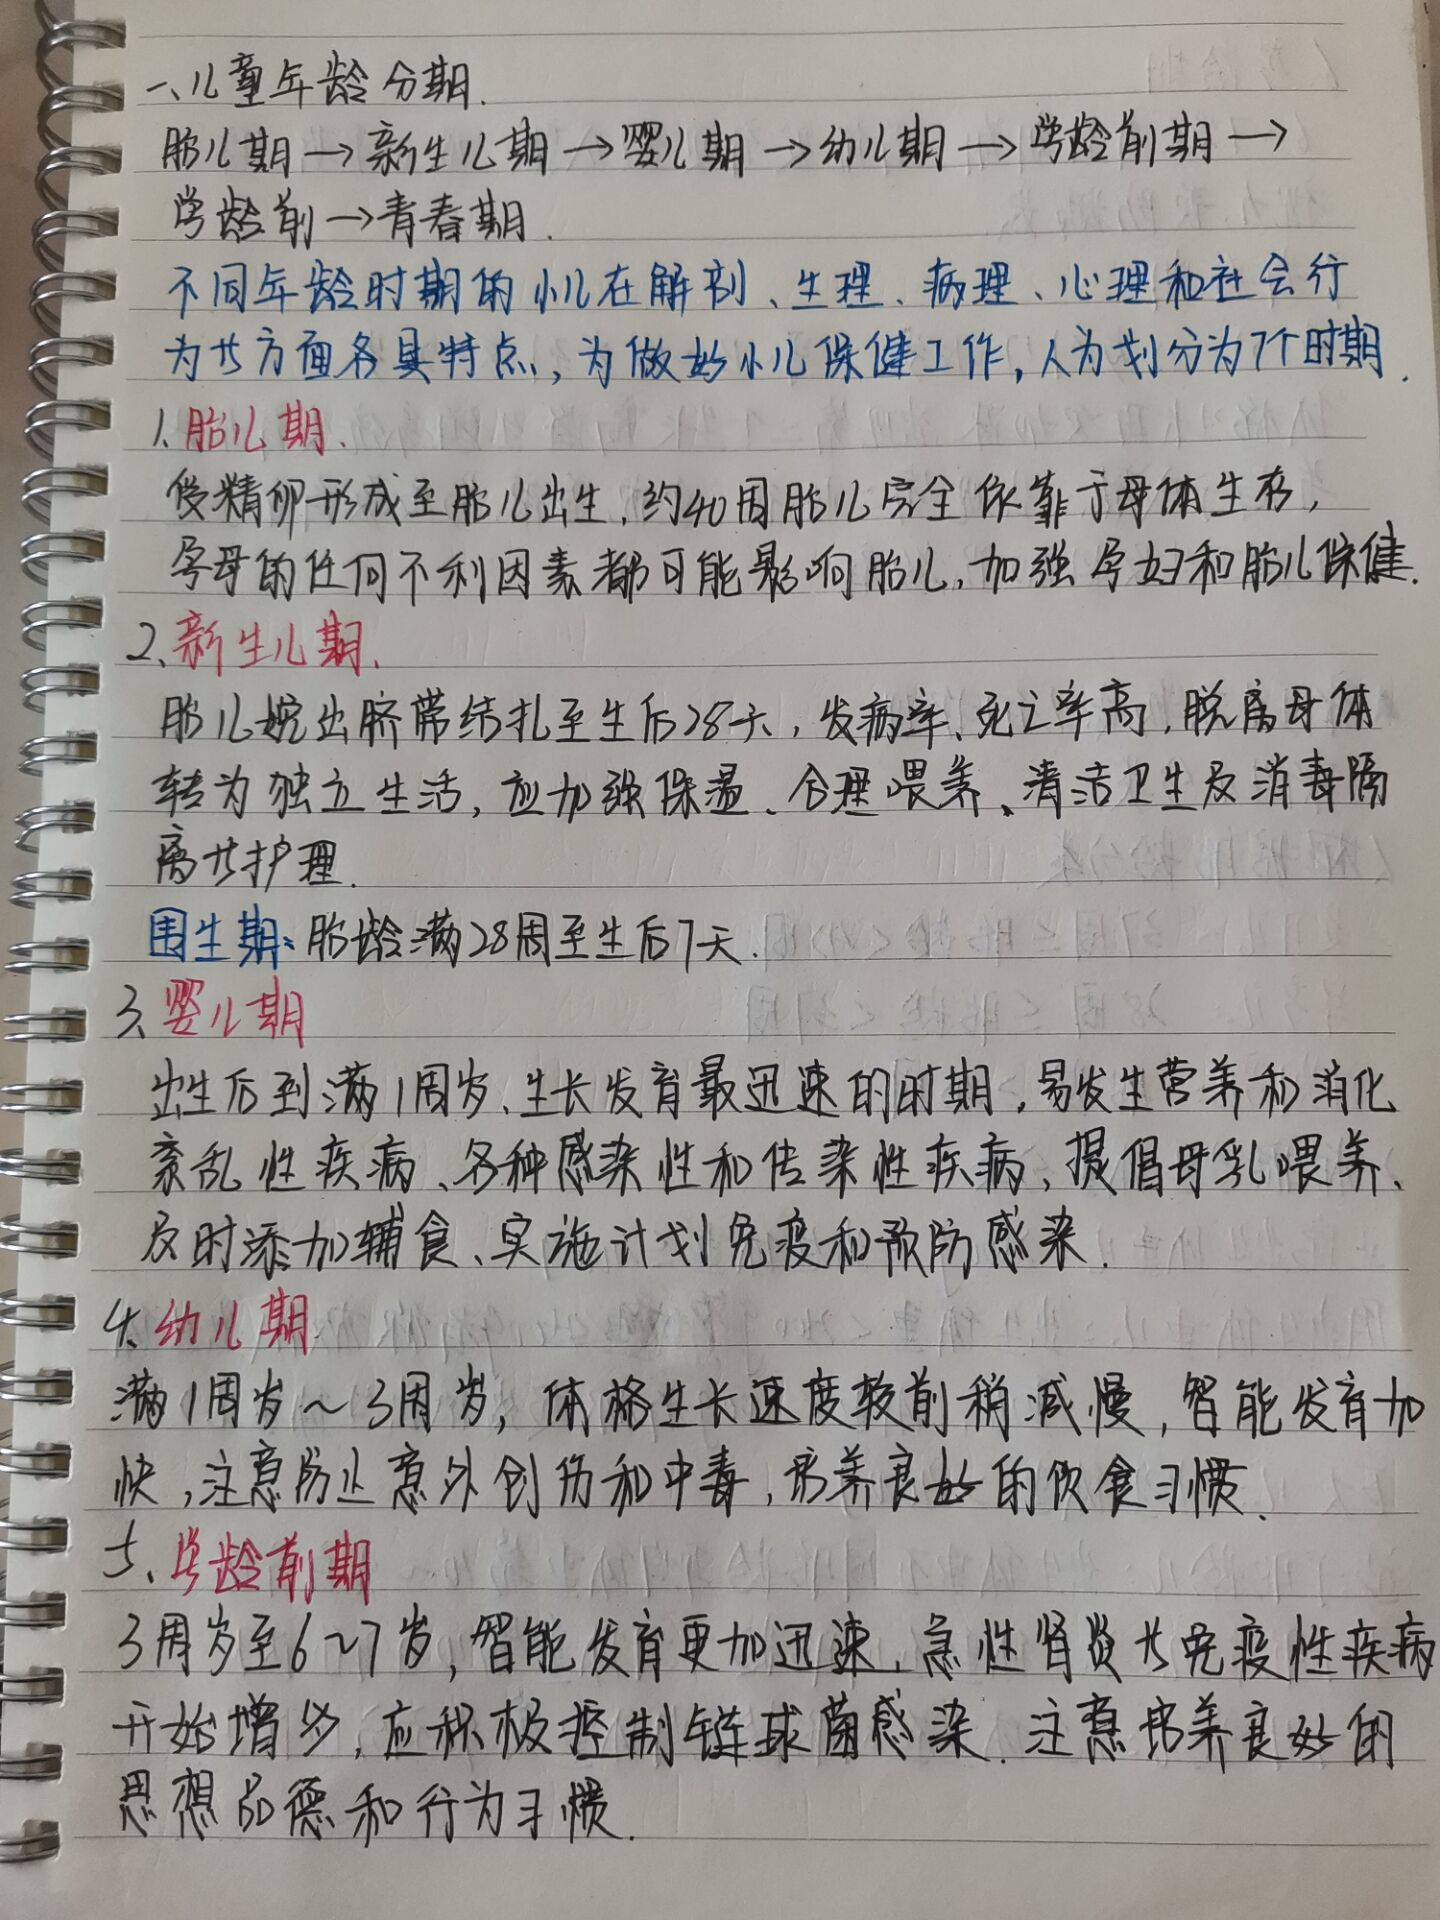 一、儿童年龄分期.
胎儿期→新生儿期→婴儿期→幼儿期→学龄前期→
学龄前→青春期.
不同年龄时期的小儿在解剖、生理、病理、心理和社会行
为共方面各具特点,为做好小儿保健工作,人为划分为7个时期.
1.胎儿期.
受精卵形成至胎儿出生,约40周胎儿完全依靠于母体生存,
孕母的任何不利因素都可能影响胎儿,加强孕妇和胎儿保健.
2、新生儿期.
胎儿娩出脐带结扎至生后28天,发病率、死亡率高,脱离母体
转为独立生活,应加强保温、合理喂养、清洁卫生及消毒隔
离共护理.
围生期:胎龄满28周至生后7天.
3、婴儿期
出生后到满1周岁、生长发育最迅速的时期,易发生营养和消化
紊乱性疾病、各种感染性和传染性疾病,提倡母乳喂养、
及时添加辅食、实施计划免疫和预防感染.
4、幼儿期
满1周岁~3周岁,体格生长速度较前稍减慢,智能发育加
快,注意防止意外创伤和中毒,培养良好的饮食习惯.
5、学龄前期
3周岁至6~7岁,智能发育更加迅速,急性肾炎共免疫性疾病
开始增多,应积极控制链球菌感染.注意培养良好的
思想品德和行为习惯.